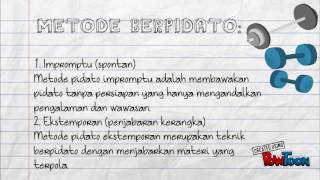 METODE BERPIDATO:
1. Impromptu (spontan)
Metode pidato impromptu adalah membawakan
pidato tanpa persiapan yang hanya mengandalkan
pengalaman dan wawasan.
2. Ekstemporan (penjabaran kerangka)
Metode pidato ekstemporan merupakan teknik
berpidato dengan menjabarkan materi yang
terpola.
CREATED USING
POWTOON